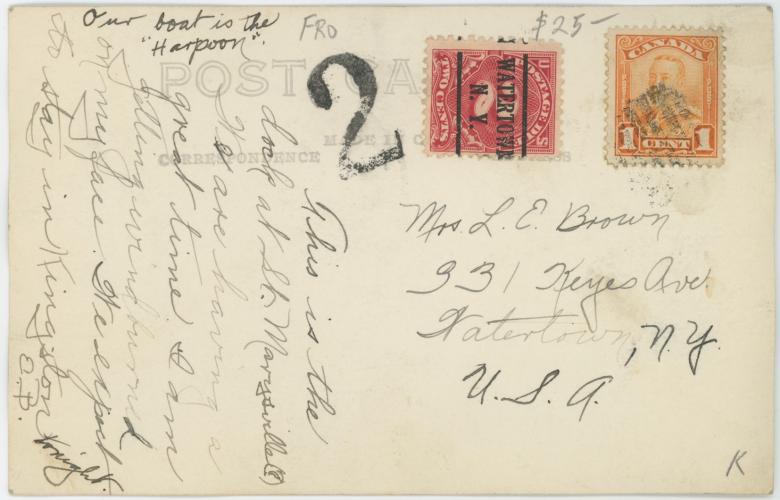 Our boat is the
"Harpoon".
FRO
$25-
POST CA
MADE IN C
CORRESPONDENCE
SS
2
POSTAGE DUE
TWO CENTS
2
WATERTOWN
N. Y.
CANADA
1 1
CENT
This is the
dock at St. Marysville(?)
We are having a
great time & am
getting windburned
on my face. We expect
to stay in Kingston
tonight.
E.B.
Mrs. L. E. Brown
331 Keyes Ave.
Watertown, N.Y.
U.S.A.
K